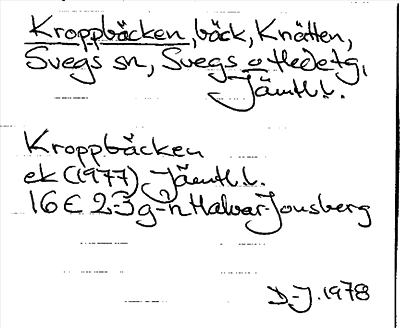 Kroppbäcken, bäck, Knätten,
Svegs sn, Svegs o Hedetg,
Jämtl.l.
Kroppbäcken
ek (1977) Jämtl.l.
16 E 2-3 g-h Halvar-Jonsberg
D.-J. 1978